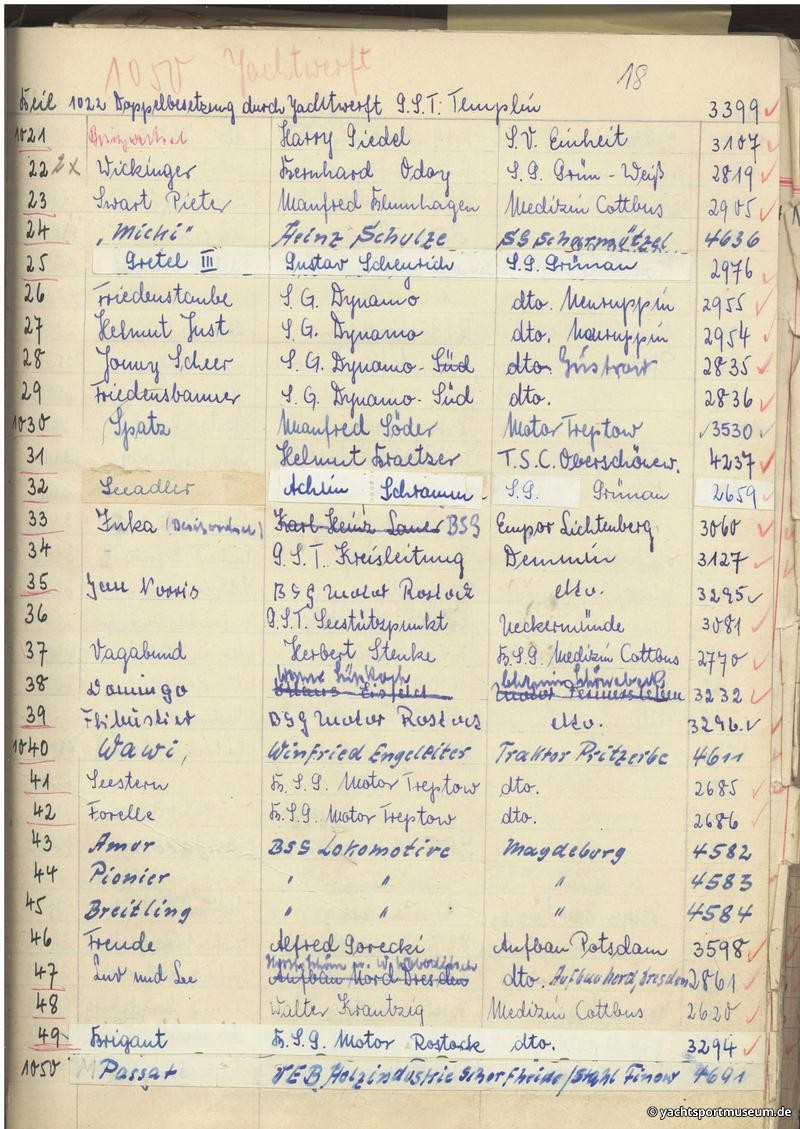 1050 Yachtwerft
18
Beil 1022 Doppelbesetzung durch Yachtwerft G.S.T. Templin 3399
1021 Harry Giedel S.V. Einheit 3107
22 2x Wickinger Bernhard Oday S.G. Grün-Weiß 2819
23 Swart Pieter Manfred Blumhagen Medizin Cottbus 2905
24 „Micki" Heinz Schulze SG Scharmützel 4636
25 Gretel III Gustav Scheurich S.G. Grünau 2976
26 Friedenstaube S.G. Dynamo dto. Neuruppin 2955
27 Helmut Just S.G. Dynamo dto. Neuruppin 2954
28 Jonny Scheer S.G. Dynamo-Süd dto. Güstrow 2835
29 Friedensbanner S.G. Dynamo-Süd dto. 2836
1030 Spatz Manfred Söder Motor Treptow 3530
31 Helmut Kraetzer T.S.C. Oberschönew. 4237
32 Seeadler Achim Schramm S.G. Grünau 2659
33 Inka Karl-Heinz BSG Empor Lichtenberg 3060
34 G.S.T. Kreisleitung Demmin 3127
35 Jan Norris BSG Motor Rostock dto. 3295
36 G.S.T. Seestützpunkt Ueckermünde 3081
37 Vagabund Herbert Stenke B.S.G. Medizin Cottbus 2770
38 Domingo 3232
39 Flibustier BSG Motor Rostock dto. 3296
1040 Wawi Winfried Engeleiter Traktor Pritzerbe 4611
41 Seestern B.S.G. Motor Treptow dto. 2685
42 Forelle B.S.G. Motor Treptow dto. 2686
43 Amor BSG Lokomotive Magdeburg 4582
44 Pionier " " " 4583
45 Breitling " " " 4584
46 Freude Alfred Gorecki Aufbau Potsdam 3598
47 Luv und Lee Aufbau Nord Dresden dto. Aufbau Nord/Dresden 2861
48 Walter Krautzig Medizin Cottbus 2620
49 Brigant B.S.G. Motor Rostock dto. 3294
1050 Passat VEB Holzindustrie Schorfheide/Stahl Finow 4691
© yachtsportmuseum.de